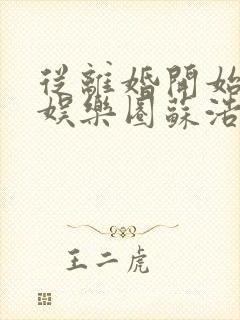 從離婚開始
娛樂圈蘇浩
王二虎